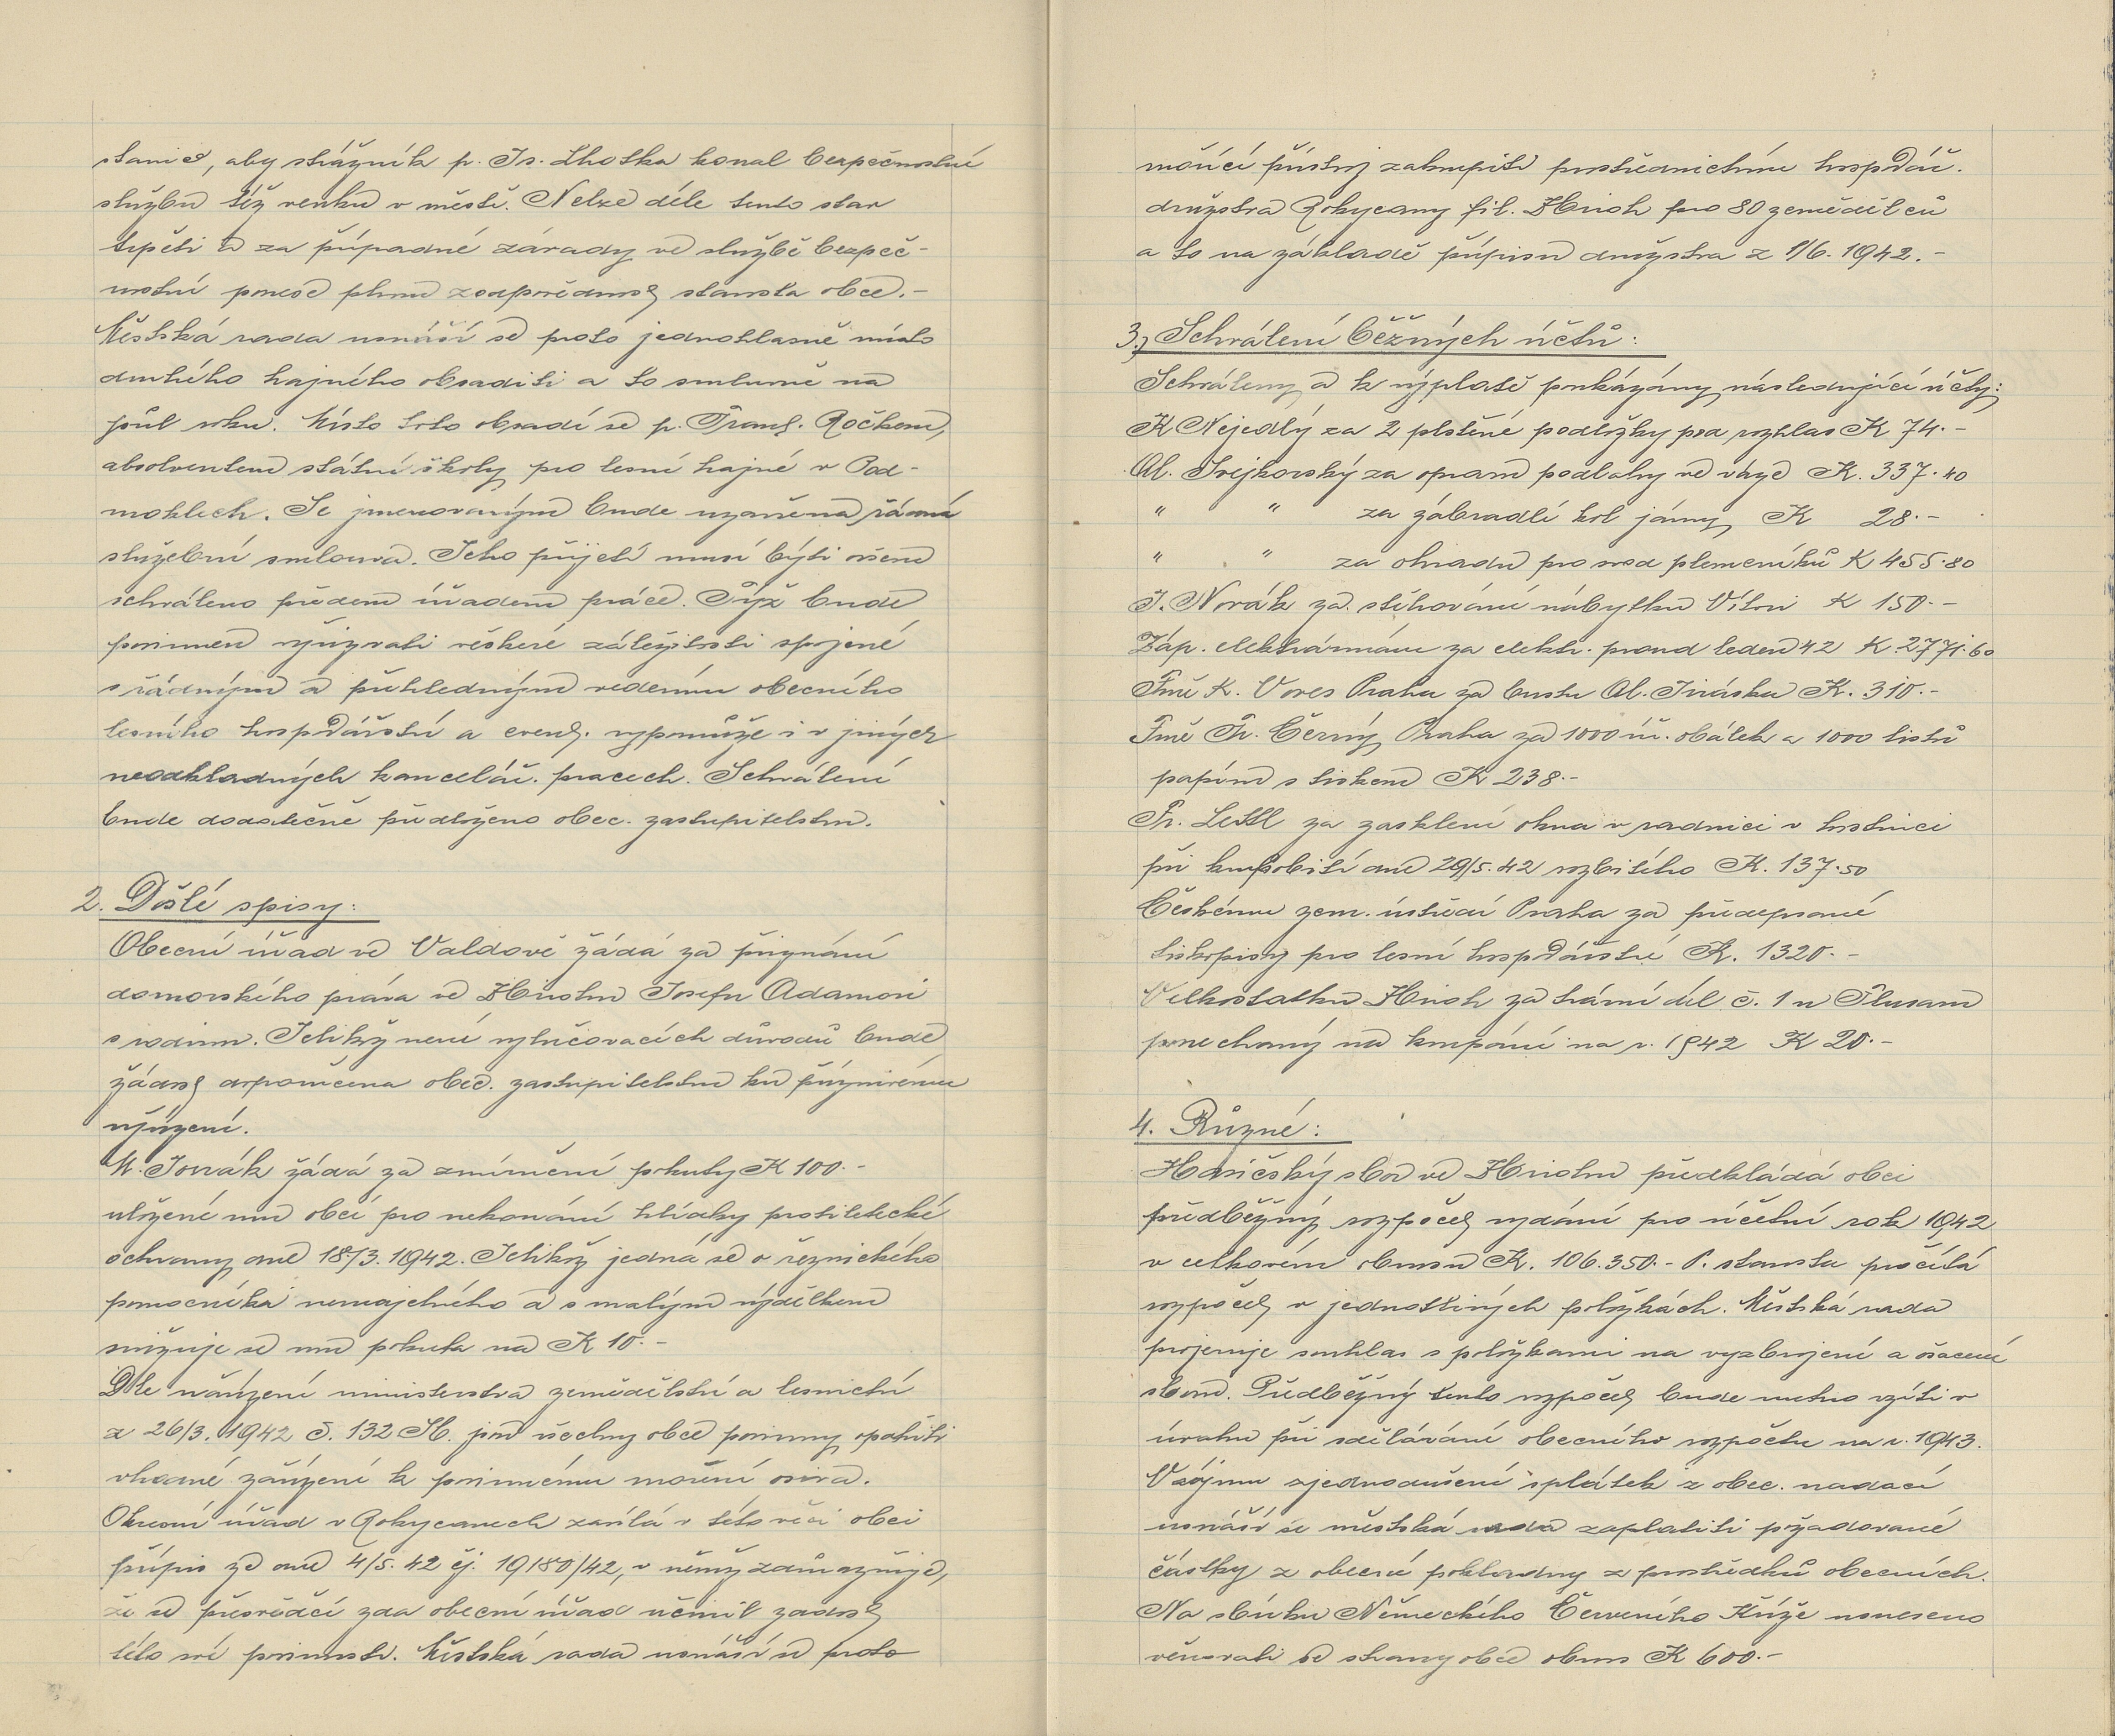 stanice, aby strážník p. Jr. Lhotka konal bezpečnostní
službu též venku v městě. Nelze déle tento stav
trpěti a za případné závady ve službě bezpeč-
nostní ponese plnou zodpovědnost starosta obce.-
Městská rada usnáší se proto jednohlasně místo
druhého hajného obsaditi a to smluvně na
půl roku. Místo toto obsadí se p. Frant. Ročkem,
absolventem státní školy pro lesní hajné v Pod-
moklech. Se jmenovaným bude uzavřena řádná
služební smlouva. Jeho přijetí musí býti ovšem
schváleno předem úřadem práce. Týž bude
povinen vyřizovati veškeré záležitosti spojené
s řádným a přehledným vedením obecného
lesního hospodářství a event. vypomůže i v jiných
neodkladných kancelář. pracech. Schválení
bude dodatečně předloženo obec. zastupitelstvu.
2. Došlé spisy:
Obecní úřad ve Valdově žádá za přiznání
domovského práva ve Zbirohu Josefu Adamovi
s rodinou. Jelikož není vylučovacích důvodů bude
žádost doporučena obec. zastupitelstvu ku příznivému
vyřízení.
žádá za zmírnění pokuty K 100.-
uložené mu obcí pro nekonání hlídky protiletecké
ochrany dne 18./3. 1942. Jelikož jedná se o řeznického
pomocníka nemajetného a s malým výdělkem
snižuje se mu pokuta na K 10.-
Dle nařízení ministerstva zemědělství a lesnictví
z 26/3. 1942 č. 132 Sb. jsou všechny obce povinny opatřiti
vhodné zařízení k povinnému moření osiva.
Okresní úřad v Rokycanech zasílá v této věci obci
přípis ze dne 4/5. 42 čj. 19180/42, v němž zdůrazňuje,
že se přesvědčí zda obecní úřad učinil zadost
této své povinnosti. Městská rada usnáší se proto
mořící přístroj zakoupiti prostřednictvím hospodář.
družstva Rokycany fil. Zbiroh pro 80 zemědělců
a to na základě přípisu družstva z 1/6. 1942.-
3.) Schválení běžných účtů:
Schváleny a k výplatě poukázány následující účty:
K Nejedlý za 2 plstěné podložky pod rozhlas K 74.-
Al. Svejkovský za opravu podlahy ve váze K. 337.40
" " za zábradlí kol jámy K 28.-
" " za ohradu pro svod plemeníků K 455.80
J. Novák za stěhování nábytku Vítovi K 150.-
Záp. elektrárnám za elektr. proud leden 42 K. 2771.60
Firmě K. Vores Praha za bustu Al. Jiráska K. 310.-
Firmě Fr. Černý Praha za 1000 úř. obálek a 1000 listů
papíru s tiskem K 238.-
Fr. za zasklení okna v radnici v hostinci
při krupobití dne 29/5. 42 rozbitého K. 137.50
Českému zem. ústředí Praha za předepsané
tiskopisy pro lesní hospodářství K. 1320.-
Velkostatku Zbiroh za travní díl č. 1 u
ponechaný na koupání na r. 1942 K 20.-
4. Různé:
Hasičský sbor ve Zbirohu předkládá obci
předběžný rozpočet vydání pro účetní rok 1942
v celkovém obnosu K. 106.350.- P. starosta pročítá
rozpočet v jednotlivých položkách. Městská rada
projevuje souhlas s položkami na vyzbrojení a ošacení
sboru. Předběžný tento rozpočet bude nutno vzíti v
úvahu při sdělávání obecního rozpočtu na r. 1943.
V zájmu zjednodušení splátek z obec. nadací
usnáší se městská rada zaplatiti požadované
částky z obecní pokladny z prostředků obecních.
Na sbírku Německého Červeného Kříže usneseno
věnovati se strany obce obnos K 600.-